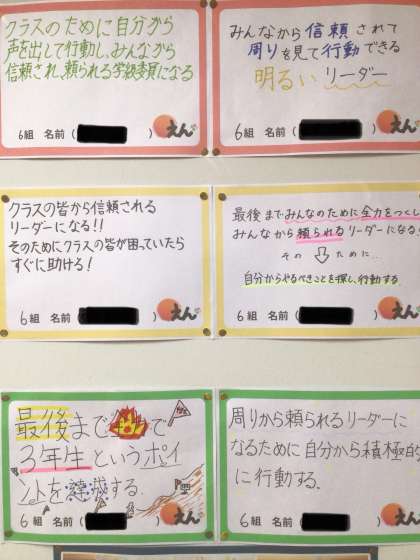 クラスのために自分から
声を出して行動し、みんなから
信頼され、頼られる学級委員になる
6組 名前( )
えん
みんなから信頼されて
周りを見て行動できる
明るいリーダー
6組 名前( )
えん
クラスの皆から信頼される
リーダーになる!!
そのためにクラスの皆が困っていたら
すぐに助ける!
6組 名前( )
えん
最後までみんなのために全力をつくし
みんなから頼られるリーダーになる
そのために…
自分からやるべきことを探し、行動する
6組 名前( )
えん
最後まで で
3年生というポイ
ントを達成する.
6組 名前( )
えん
周りから頼られるリーダーに
なるために自分から積極的
に行動する.
6組 名前( )
えん